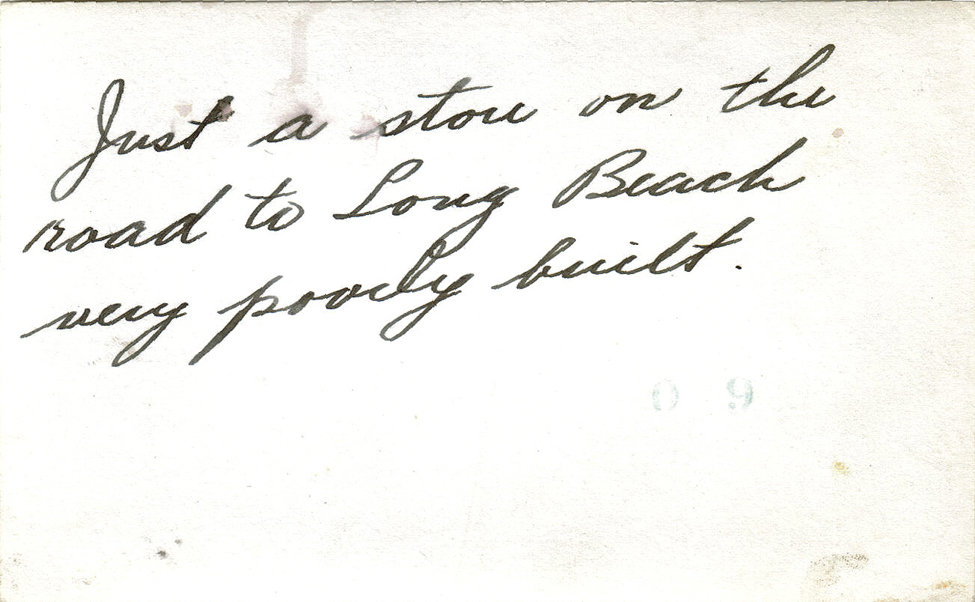 Just a store on the
road to Long Beach
very poorly built.
0 9